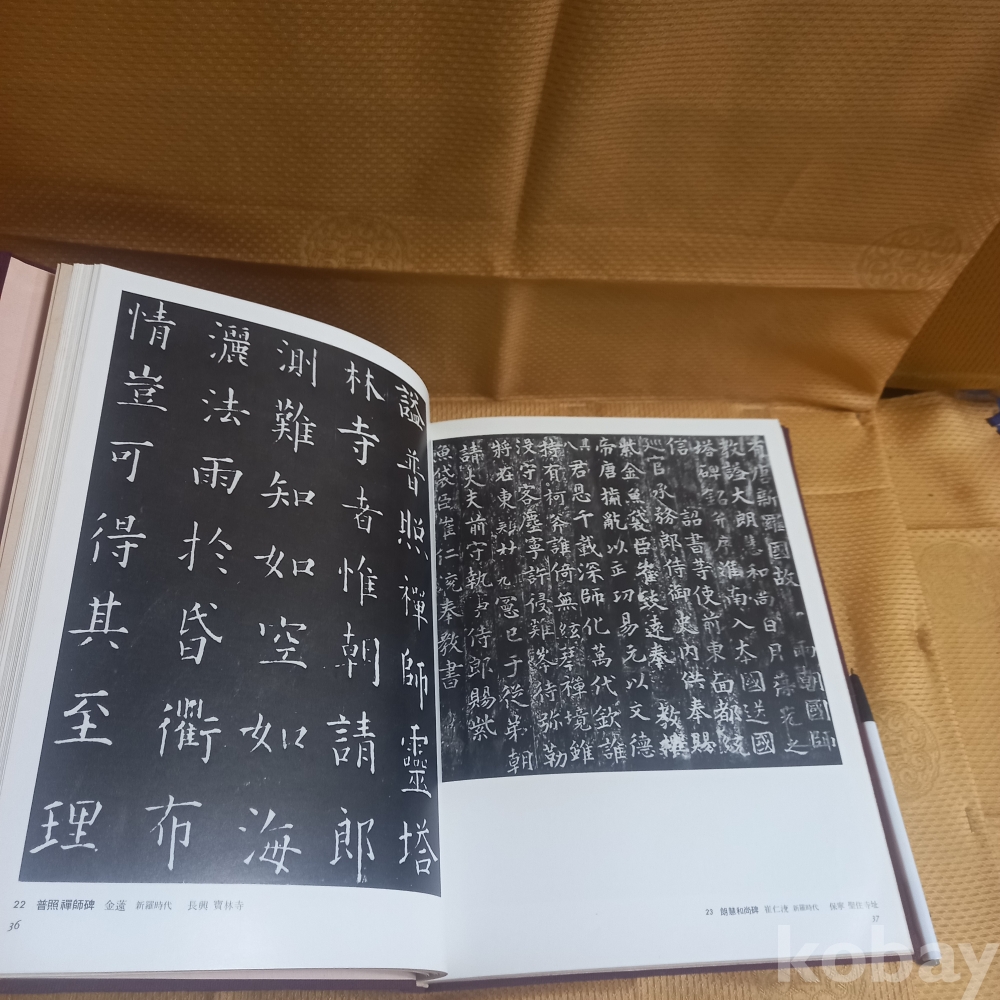 謚普照禪師靈塔
林寺者惟朝請郎
測難知如空如海
灑法雨於昏衢布
情豈可得其至理
22 普照禪師碑 金薳 新羅時代 長興 寶林寺
36
有唐新羅國故 兩朝國師
教諡大朗慧和尚白月葆光之
塔碑銘并序 淮南入本國送國
信 詔書等使前東面都統
巡官承務郎侍御史內供奉賜
紫金魚袋臣崔致遠奉 教撰
帝唐揃亂以正功易元以文德
君恩千載深師化萬代欽誰
持有柯斧誰倚無絃琴禪境雖
沒守客塵寧許侵雞峯待彌勒
將在東雞 從弟朝
請大夫前守執事侍郎賜紫
魚袋臣崔仁渷奉教書
23 朗慧和尚碑 崔仁渷 新羅時代 保寧 聖住寺址
37
kobay